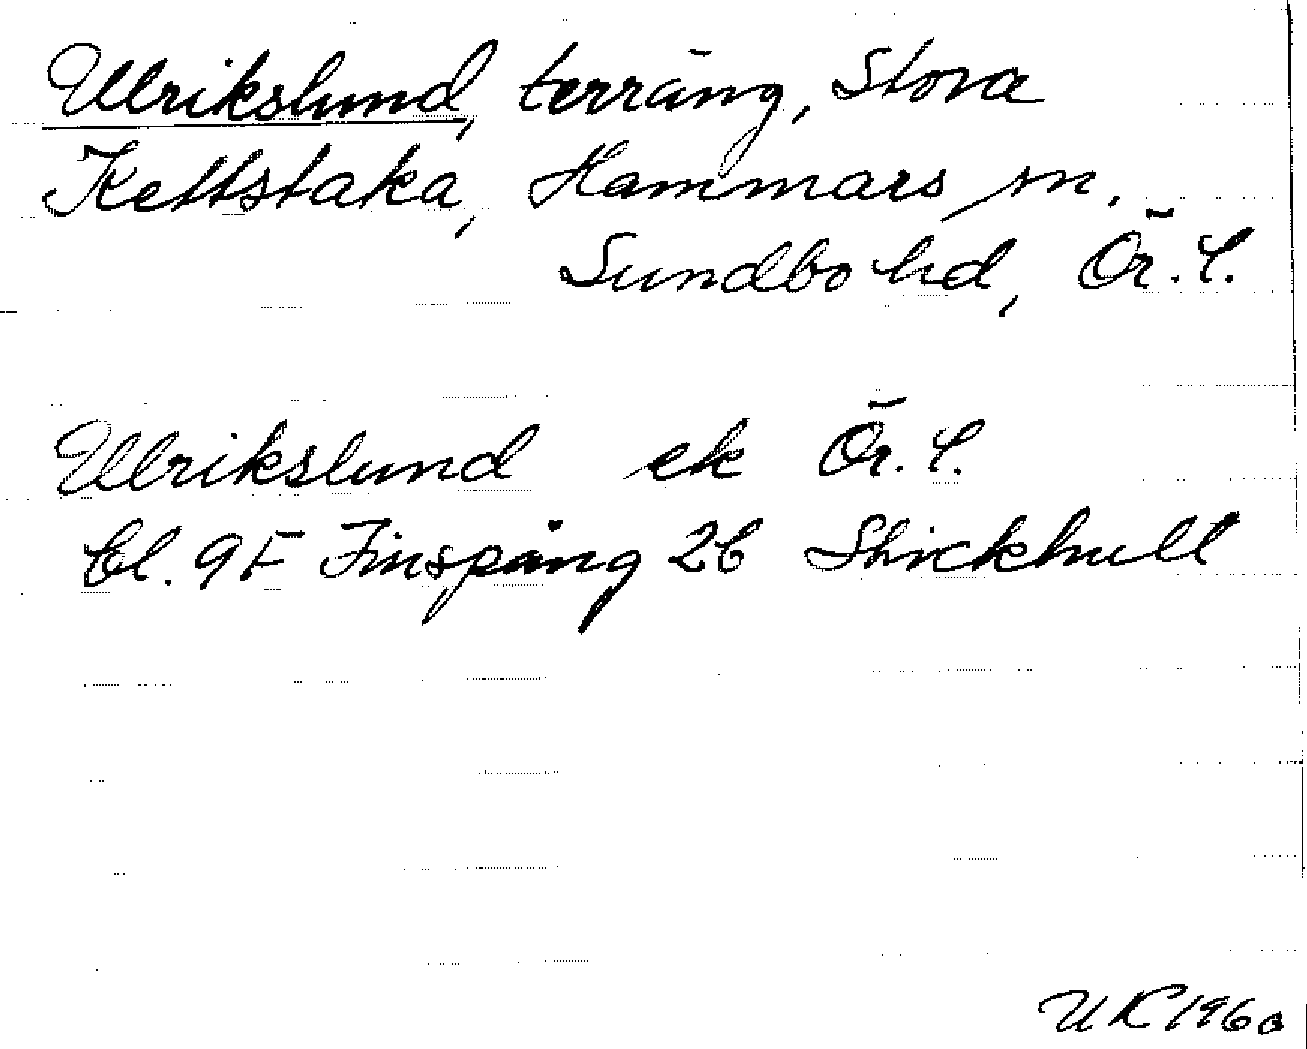 Ulrikslund, terräng, Stora
Kettstaka, Hammars sn.
Sundbo hd, Ör. l.
Ulrikslund ek Ör. l.
bl. 9F Finspång 2b
UK 1960